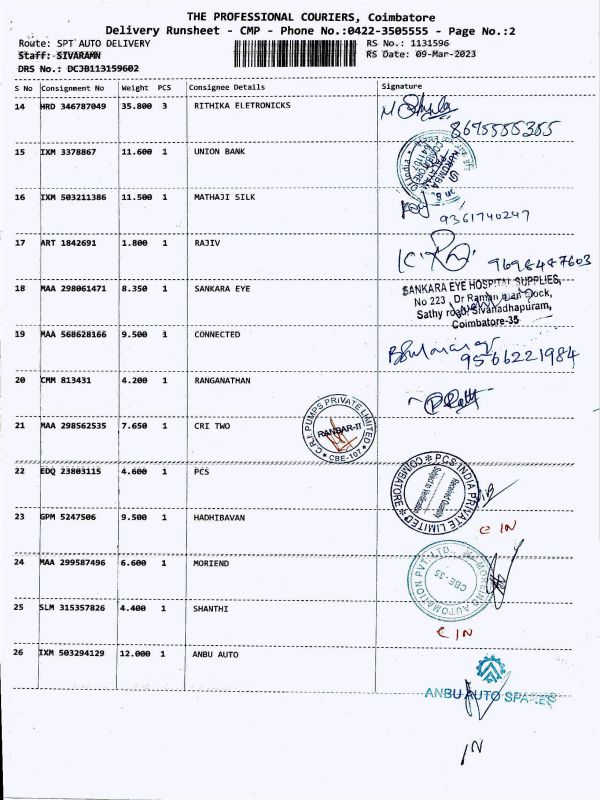 THE PROFESSIONAL COURIERS, Coimbatore
Delivery Runsheet - CMP - Phone No.:0422-3505555 - Page No.:2
Route: SPT AUTO DELIVERY RS No.: 1131596
Staff: SIVARAMN RS Date: 09-Mar-2023
DRS No.: DCJB113159602
S No Consignment No Weight PCS Consignee Details Signature
14 HRD 346787049 35.800 3 RITHIKA ELETRONICKS
8695555355
15 IXM 3378867 11.600 1 UNION BANK
16 IXM 503211386 11.500 1 MATHAJI SILK
9361740247
17 ART 1842691 1.800 1 RAJIV
9698487603
18 MAA 298061471 8.350 1 SANKARA EYE
SANKARA EYE HOSPITAL SUPPLIES,
No 223 , Dr Raman Dock,
Sathy road, Sivanadhapuram,
Coimbatore-35
19 MAA 568628166 9.500 1 CONNECTED
9566221984
20 CMM 813431 4.200 1 RANGANATHAN
21 MAA 298562535 7.650 1 CRI TWO
C.R.I. PUMPS PRIVATE LIMITED
RANGAR-II
CBE-107
22 EDQ 23803115 4.600 1 PCS
PCS INDIA PRIVATE LIMITED
COIMBATORE
Received Quantity
Subject to Verification
23 GPM 5247506 9.500 1 HADHIBAVAN
C IN
24 MAA 299587496 6.600 1 MORIEND
AUTOMATION PVT. LTD.,
CBE-35
25 SLM 315357826 4.400 1 SHANTHI
C IN
26 IXM 503294129 12.000 1 ANBU AUTO
ANBU AUTO SPARES
IN